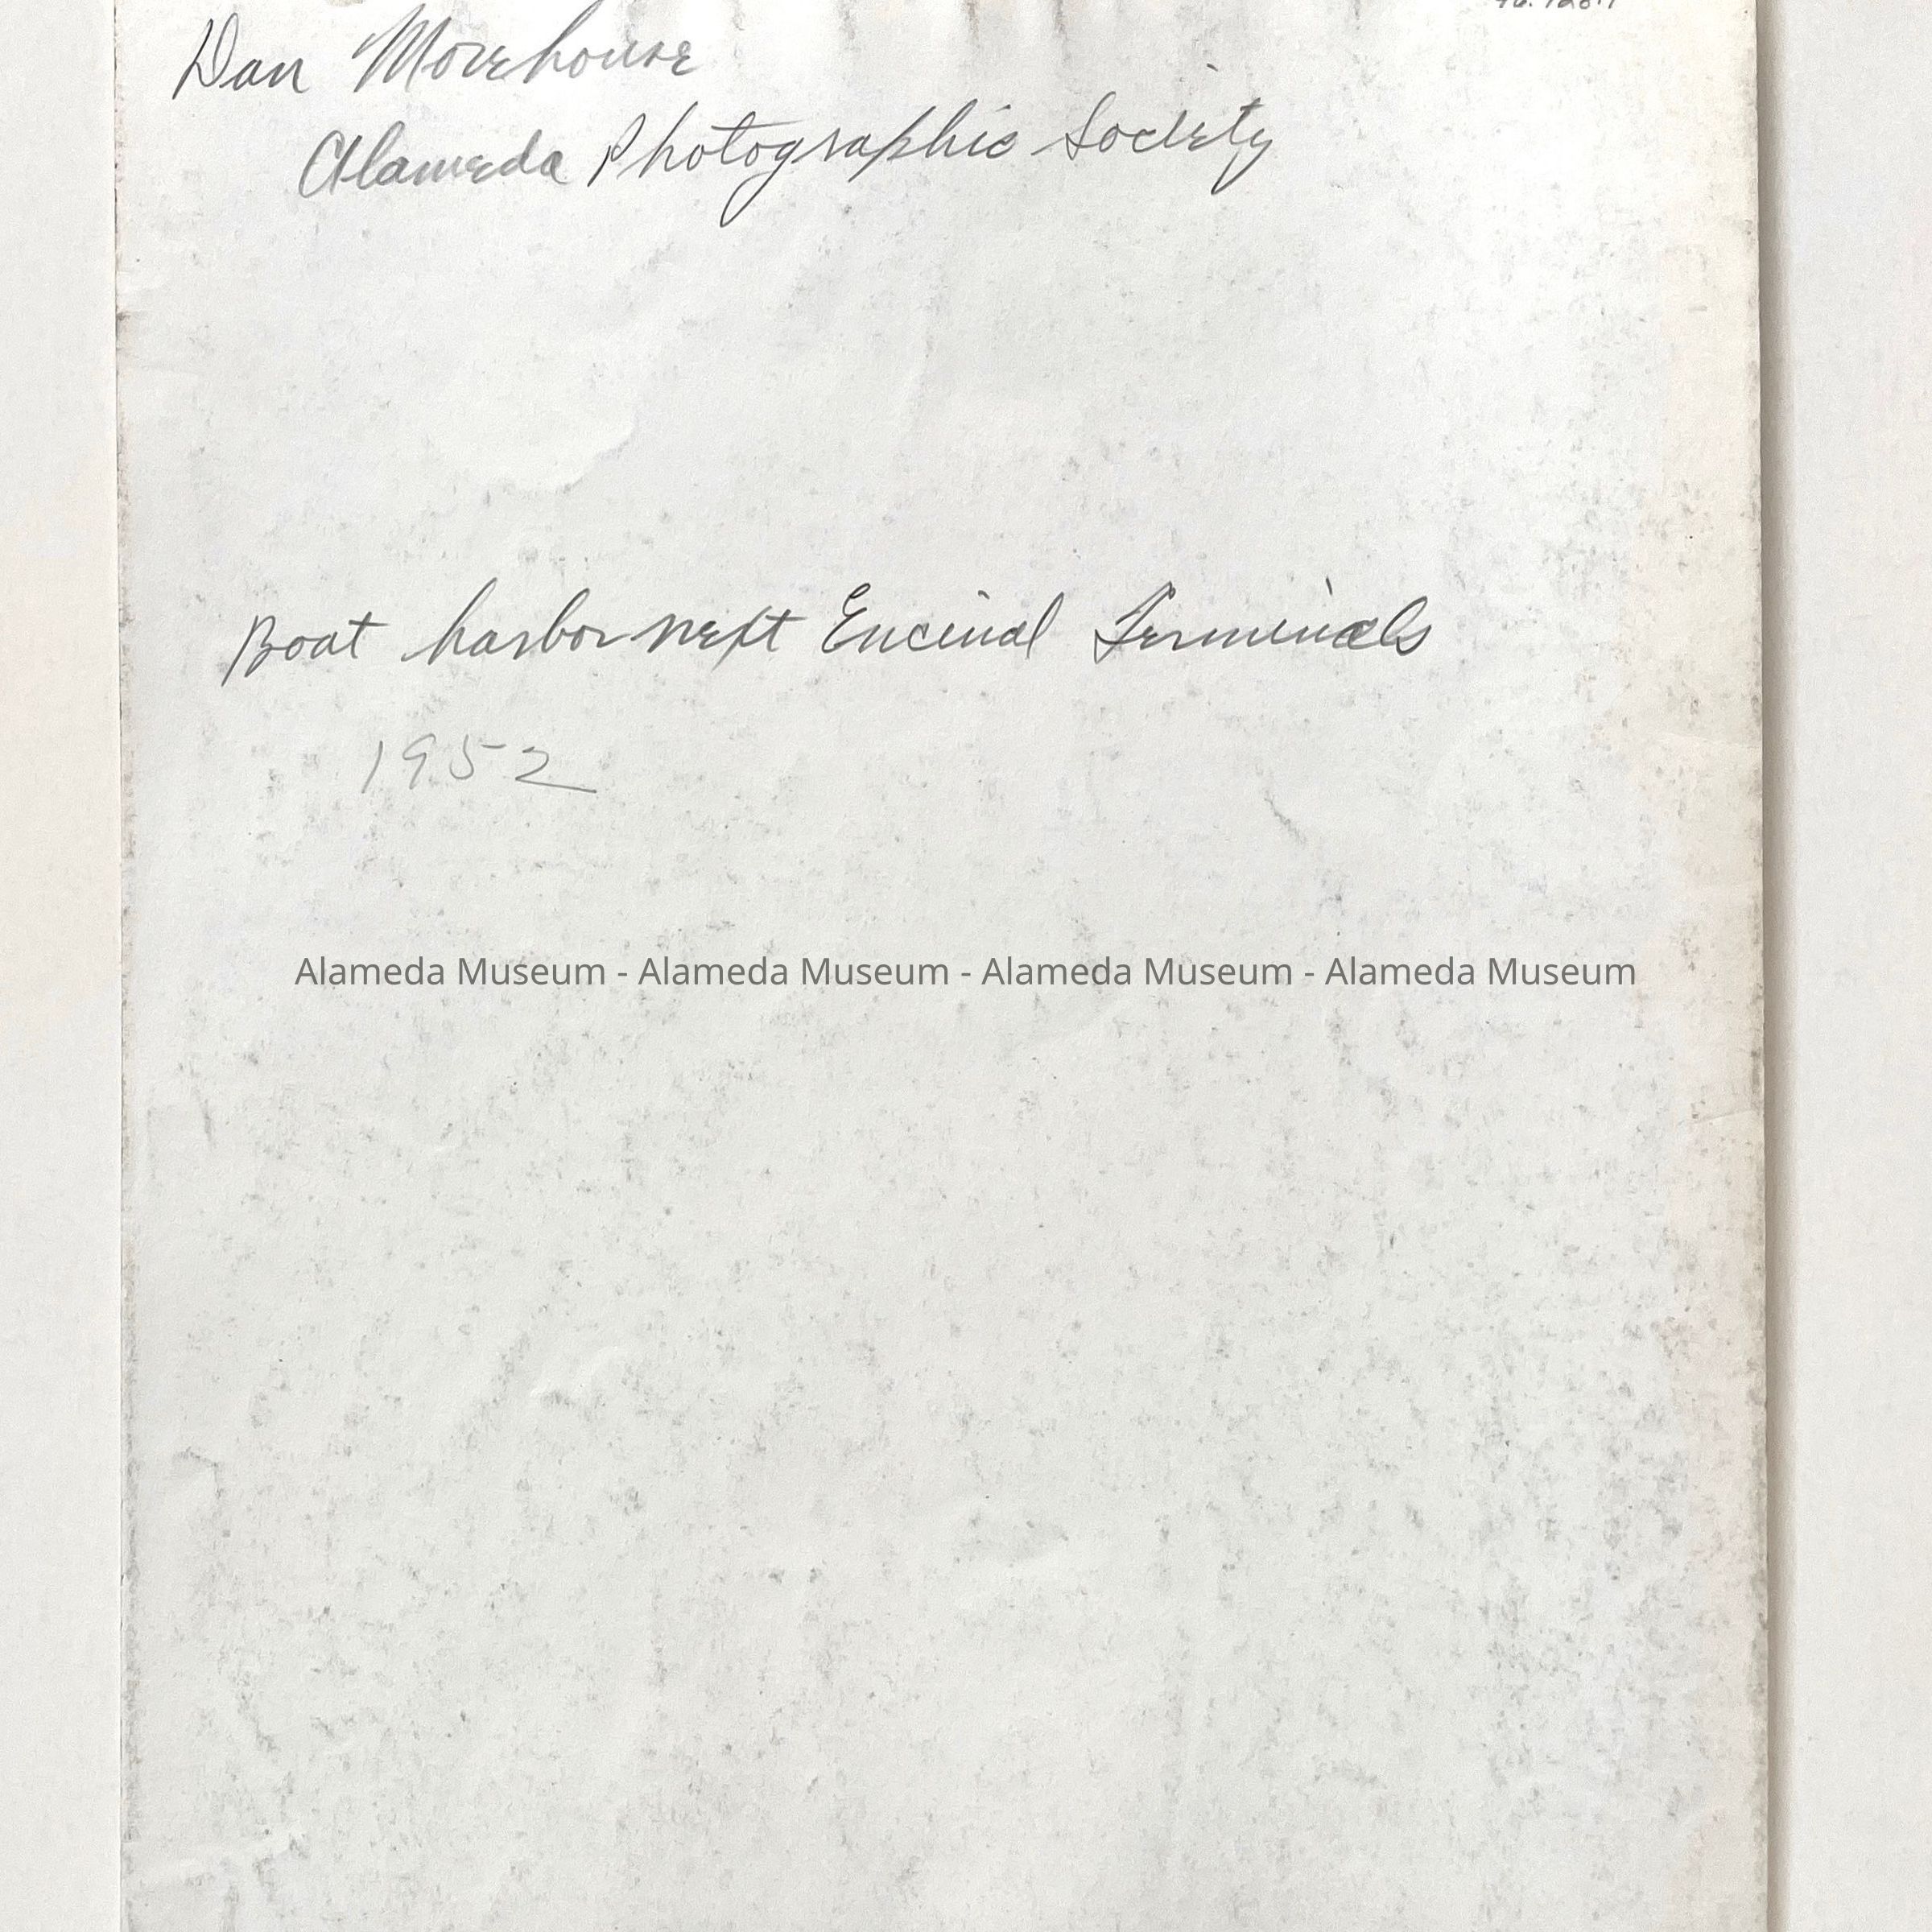 Dan Morehouse
Alameda Photographic Society
Boat harbor next Encinal Terminals
1952
Alameda Museum - Alameda Museum - Alameda Museum - Alameda Museum